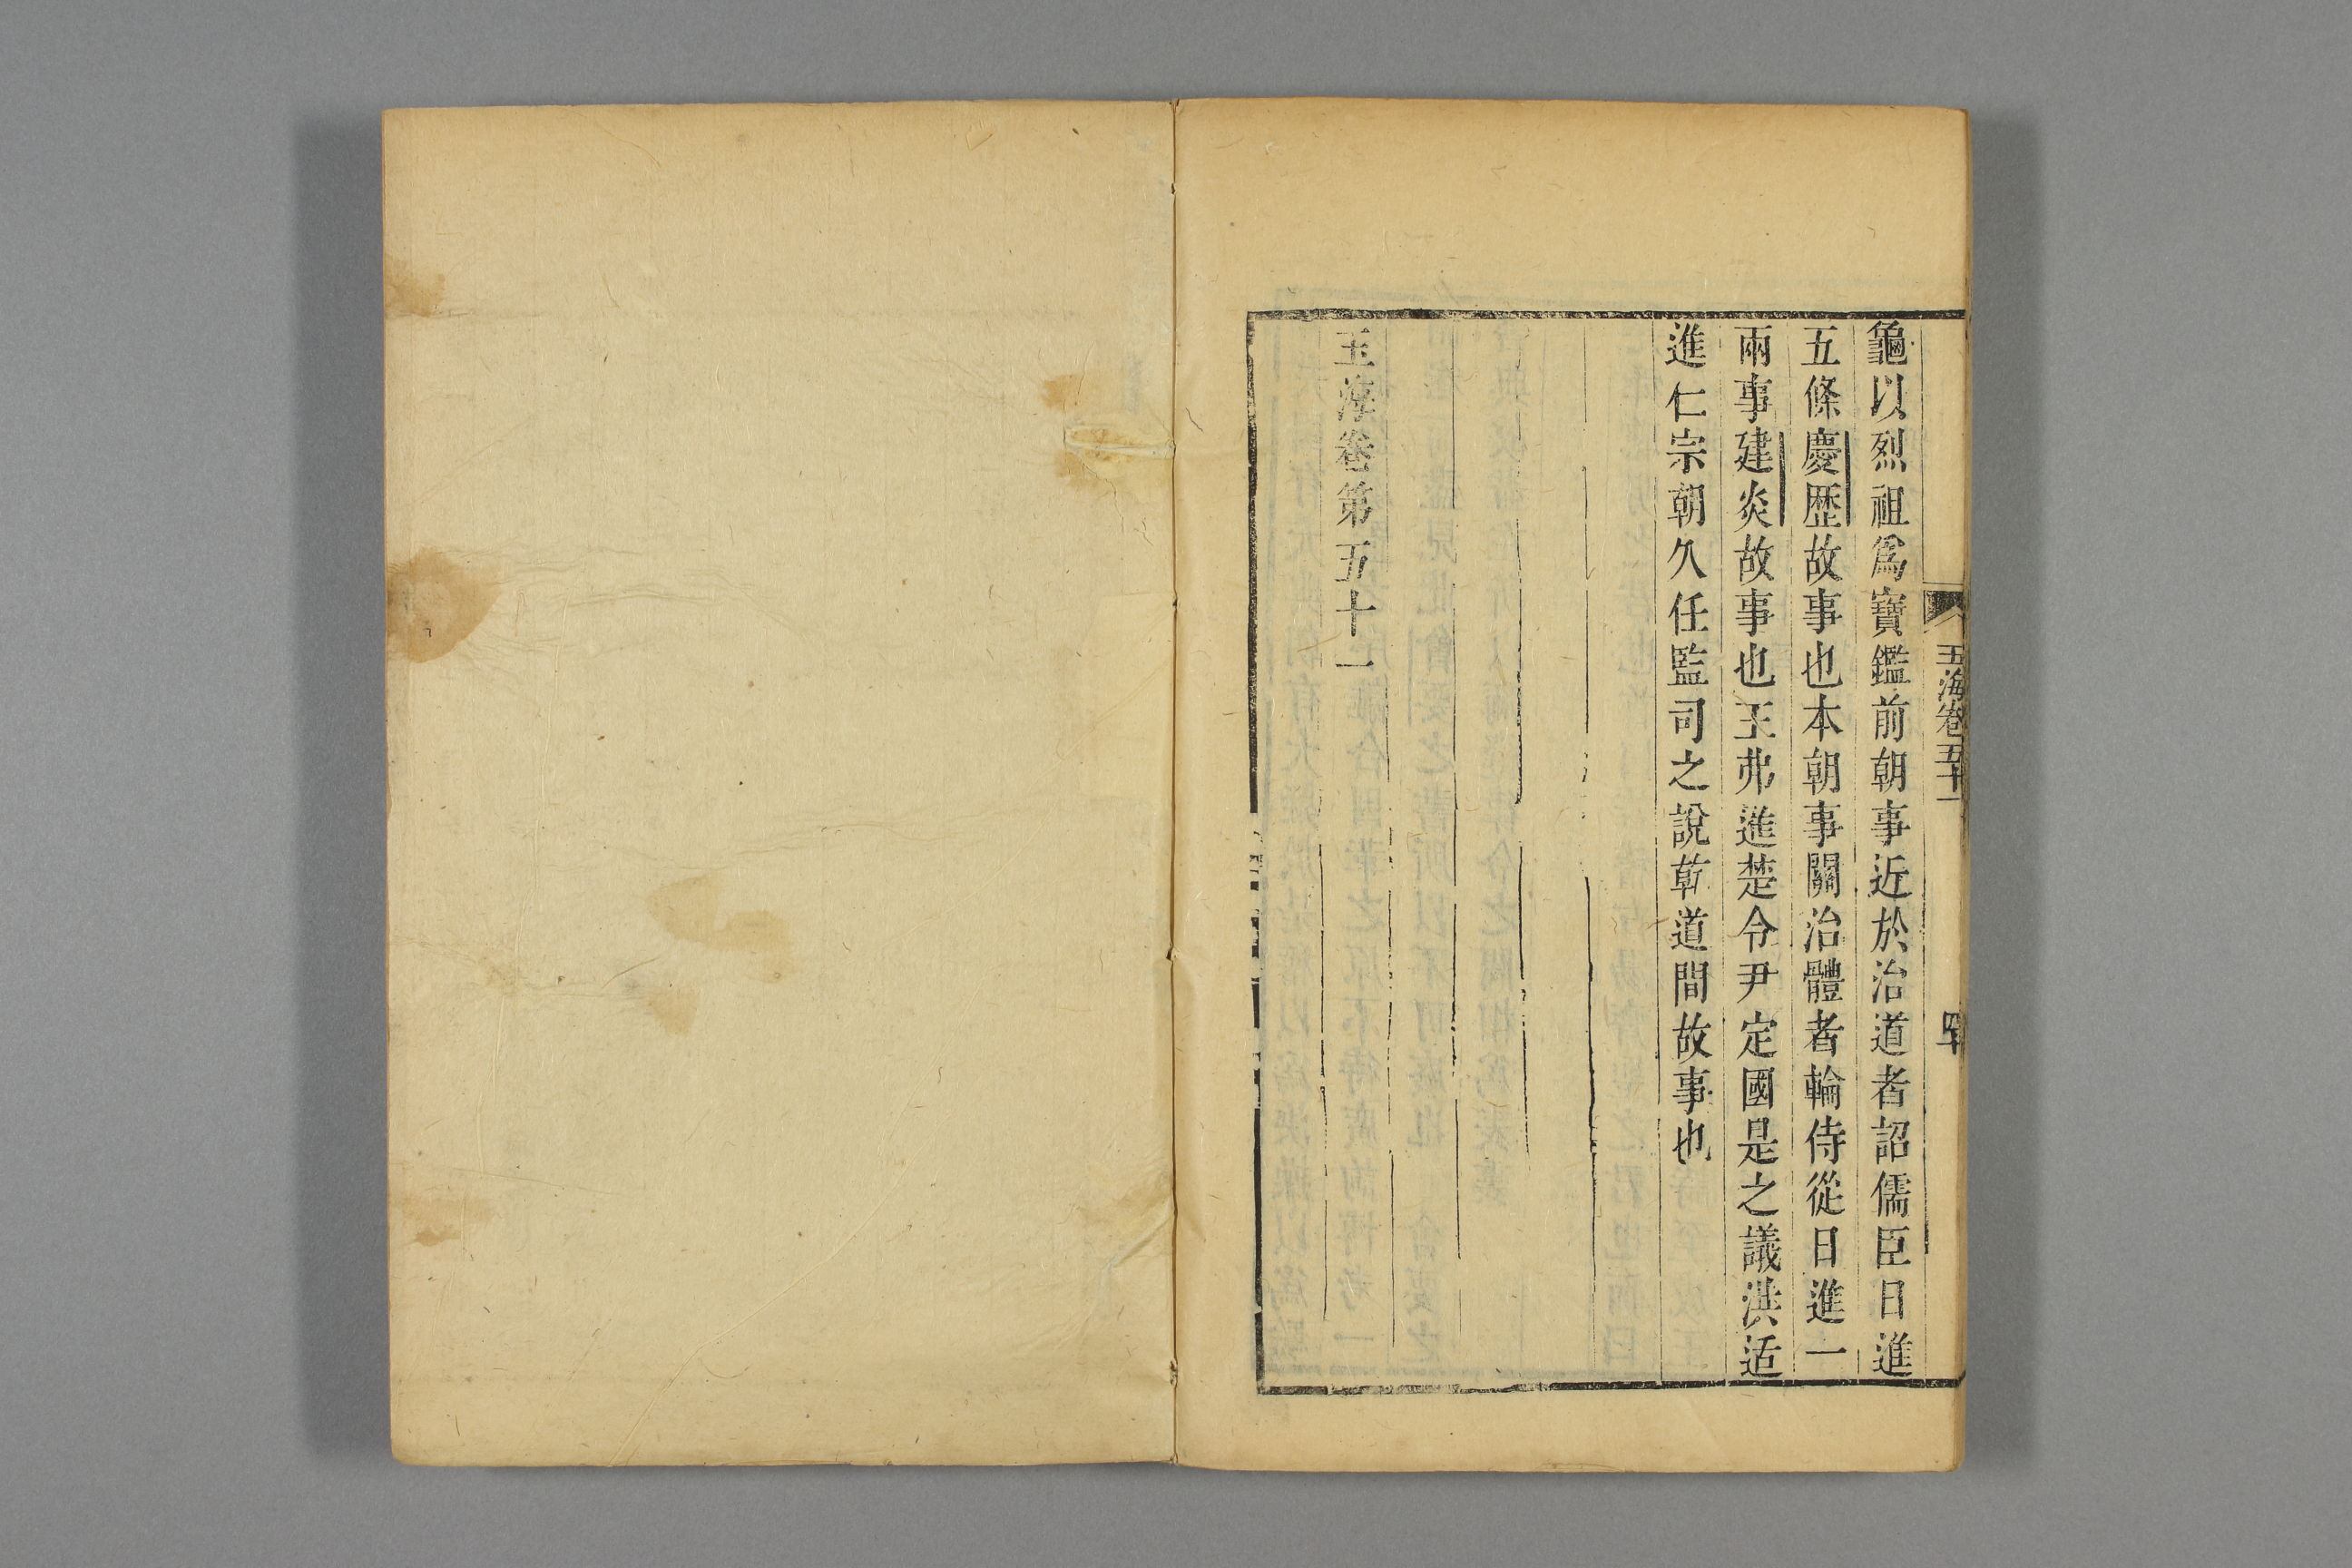 玉海卷五十一
四十
龜以烈祖爲寶鑑前朝事近於治道者詔儒臣日進
五條慶歷故事也本朝事關治體者輪侍從日進一
兩事建炎故事也王弗進楚令尹定國是之議洪适
進仁宗朝久任監司之說乾道間故事也
玉海卷第五十一